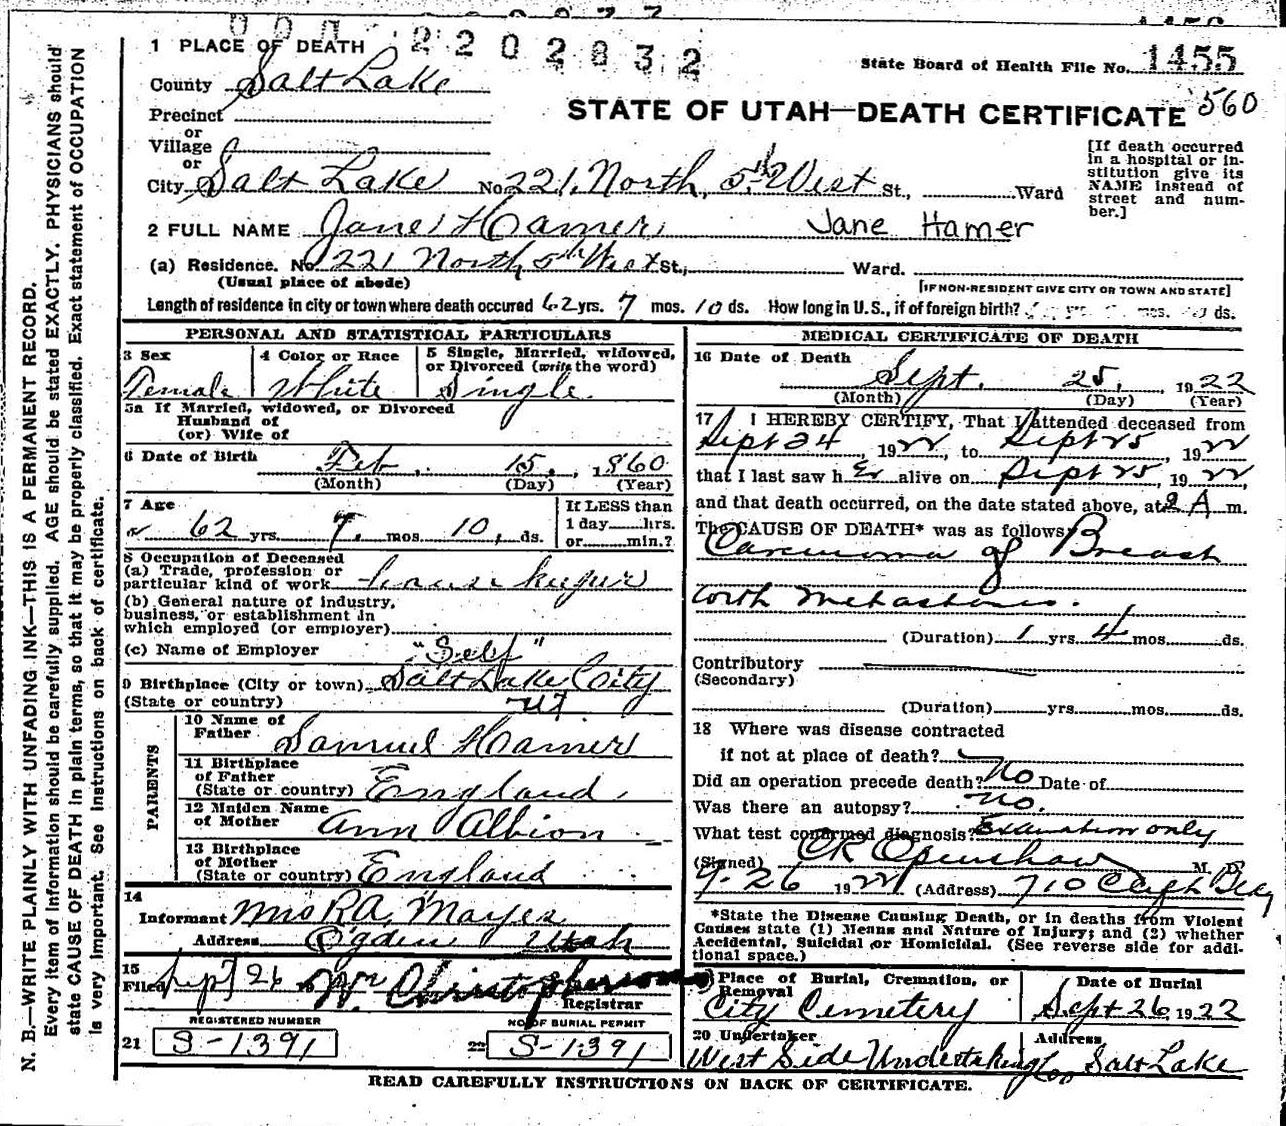 2202832
1455
State Board of Health File No. 1455
1 PLACE OF DEATH
County Salt Lake
STATE OF UTAH—DEATH CERTIFICATE 560
Precinct
or
Village
or
City Salt Lake No. 221 North, 5th West St., Ward
[If death occurred in a hospital or in-
stitution give its
NAME instead of
street and num-
ber.]
2 FULL NAME Jane Hamer Jane Hamer
(a) Residence. No. 221 North 5th West St., Ward.
(Usual place of abode) [IF NON-RESIDENT GIVE CITY OR TOWN AND STATE]
Length of residence in city or town where death occured 62 yrs. 7 mos. 10 ds. How long in U.S., if of foreign birth? yrs. mos. ds.
PERSONAL AND STATISTICAL PARTICULARS
3 Sex
Female
4 Color or Race
White
5 Single, Married, widowed,
or Divorced (write the word)
Single
5a If Married, widowed, or Divorced
Husband of
(or) Wife of
6 Date of Birth Feb 15, 1860
(Month) (Day) (Year)
7 Age
62 yrs. 7 mos. 10, ds.
If LESS than
1 day hrs.
or min.?
8 Occupation of Deceased
(a) Trade, profession or
particular kind of work house keeper
(b) General nature of industry,
business, or establishment in
which employed (or employer)
(c) Name of Employer "Self"
9 Birthplace (City or town) Salt Lake City
(State or country) Ut
PARENTS
10 Name of
Father Samuel Hamer
11 Birthplace
of Father
(State or country) England
12 Maiden Name
of Mother Ann Albion
13 Birthplace
of Mother
(State or country) England
14
Informant Mrs R.A. Mayes
Address Ogden Utah
15
Filed Sept 26 W Christopherson
Registrar
REGISTERED NUMBER
21 S-1391
NO OF BURIAL PERMIT
22 S-1391
MEDICAL CERTIFICATE OF DEATH
16 Date of Death
Sept. 25, 1922
(Month) (Day) (Year)
17 I HEREBY CERTIFY, That I attended deceased from
Sept 24, 1922, to Sept 25, 1922
that I last saw h er alive on Sept 25, 1922,
and that death occurred, on the date stated above, at 2 A m.
The CAUSE OF DEATH* was as follows:
Carcinoma of Breast
with metastases.
(Duration) 1 yrs. 4 mos. ds.
Contributory
(Secondary)
(Duration) yrs. mos. ds.
18 Where was disease contracted
if not at place of death?
Did an operation precede death? No Date of
Was there an autopsy? no.
What test confirmed diagnosis? Examination only
(Signed) CR Openshaw M. D.
9-26 1922 (Address) 710 Bldg
*State the Disease Causing Death, or in deaths from Violent
Causes state (1) Means and Nature of Injury; and (2) whether
Accidental, Suicidal or Homicidal. (See reverse side for addi-
tional space.)
Place of Burial, Cremation, or
Removal
City Cemetery
Date of Burial
Sept 26, 1922
20 Undertaker
West Side Undertaking Co
Address
Salt Lake
READ CAREFULLY INSTRUCTIONS ON BACK OF CERTIFICATE.
N. B.—WRITE PLAINLY WITH UNFADING INK—THIS IS A PERMANENT RECORD.
Every item of information should be carefully supplied. AGE should be stated EXACTLY. PHYSICIANS should
state CAUSE OF DEATH in plain terms, so that it may be properly classified. Exact statement of OCCUPATION
is very important. See Instructions on back of certificate.